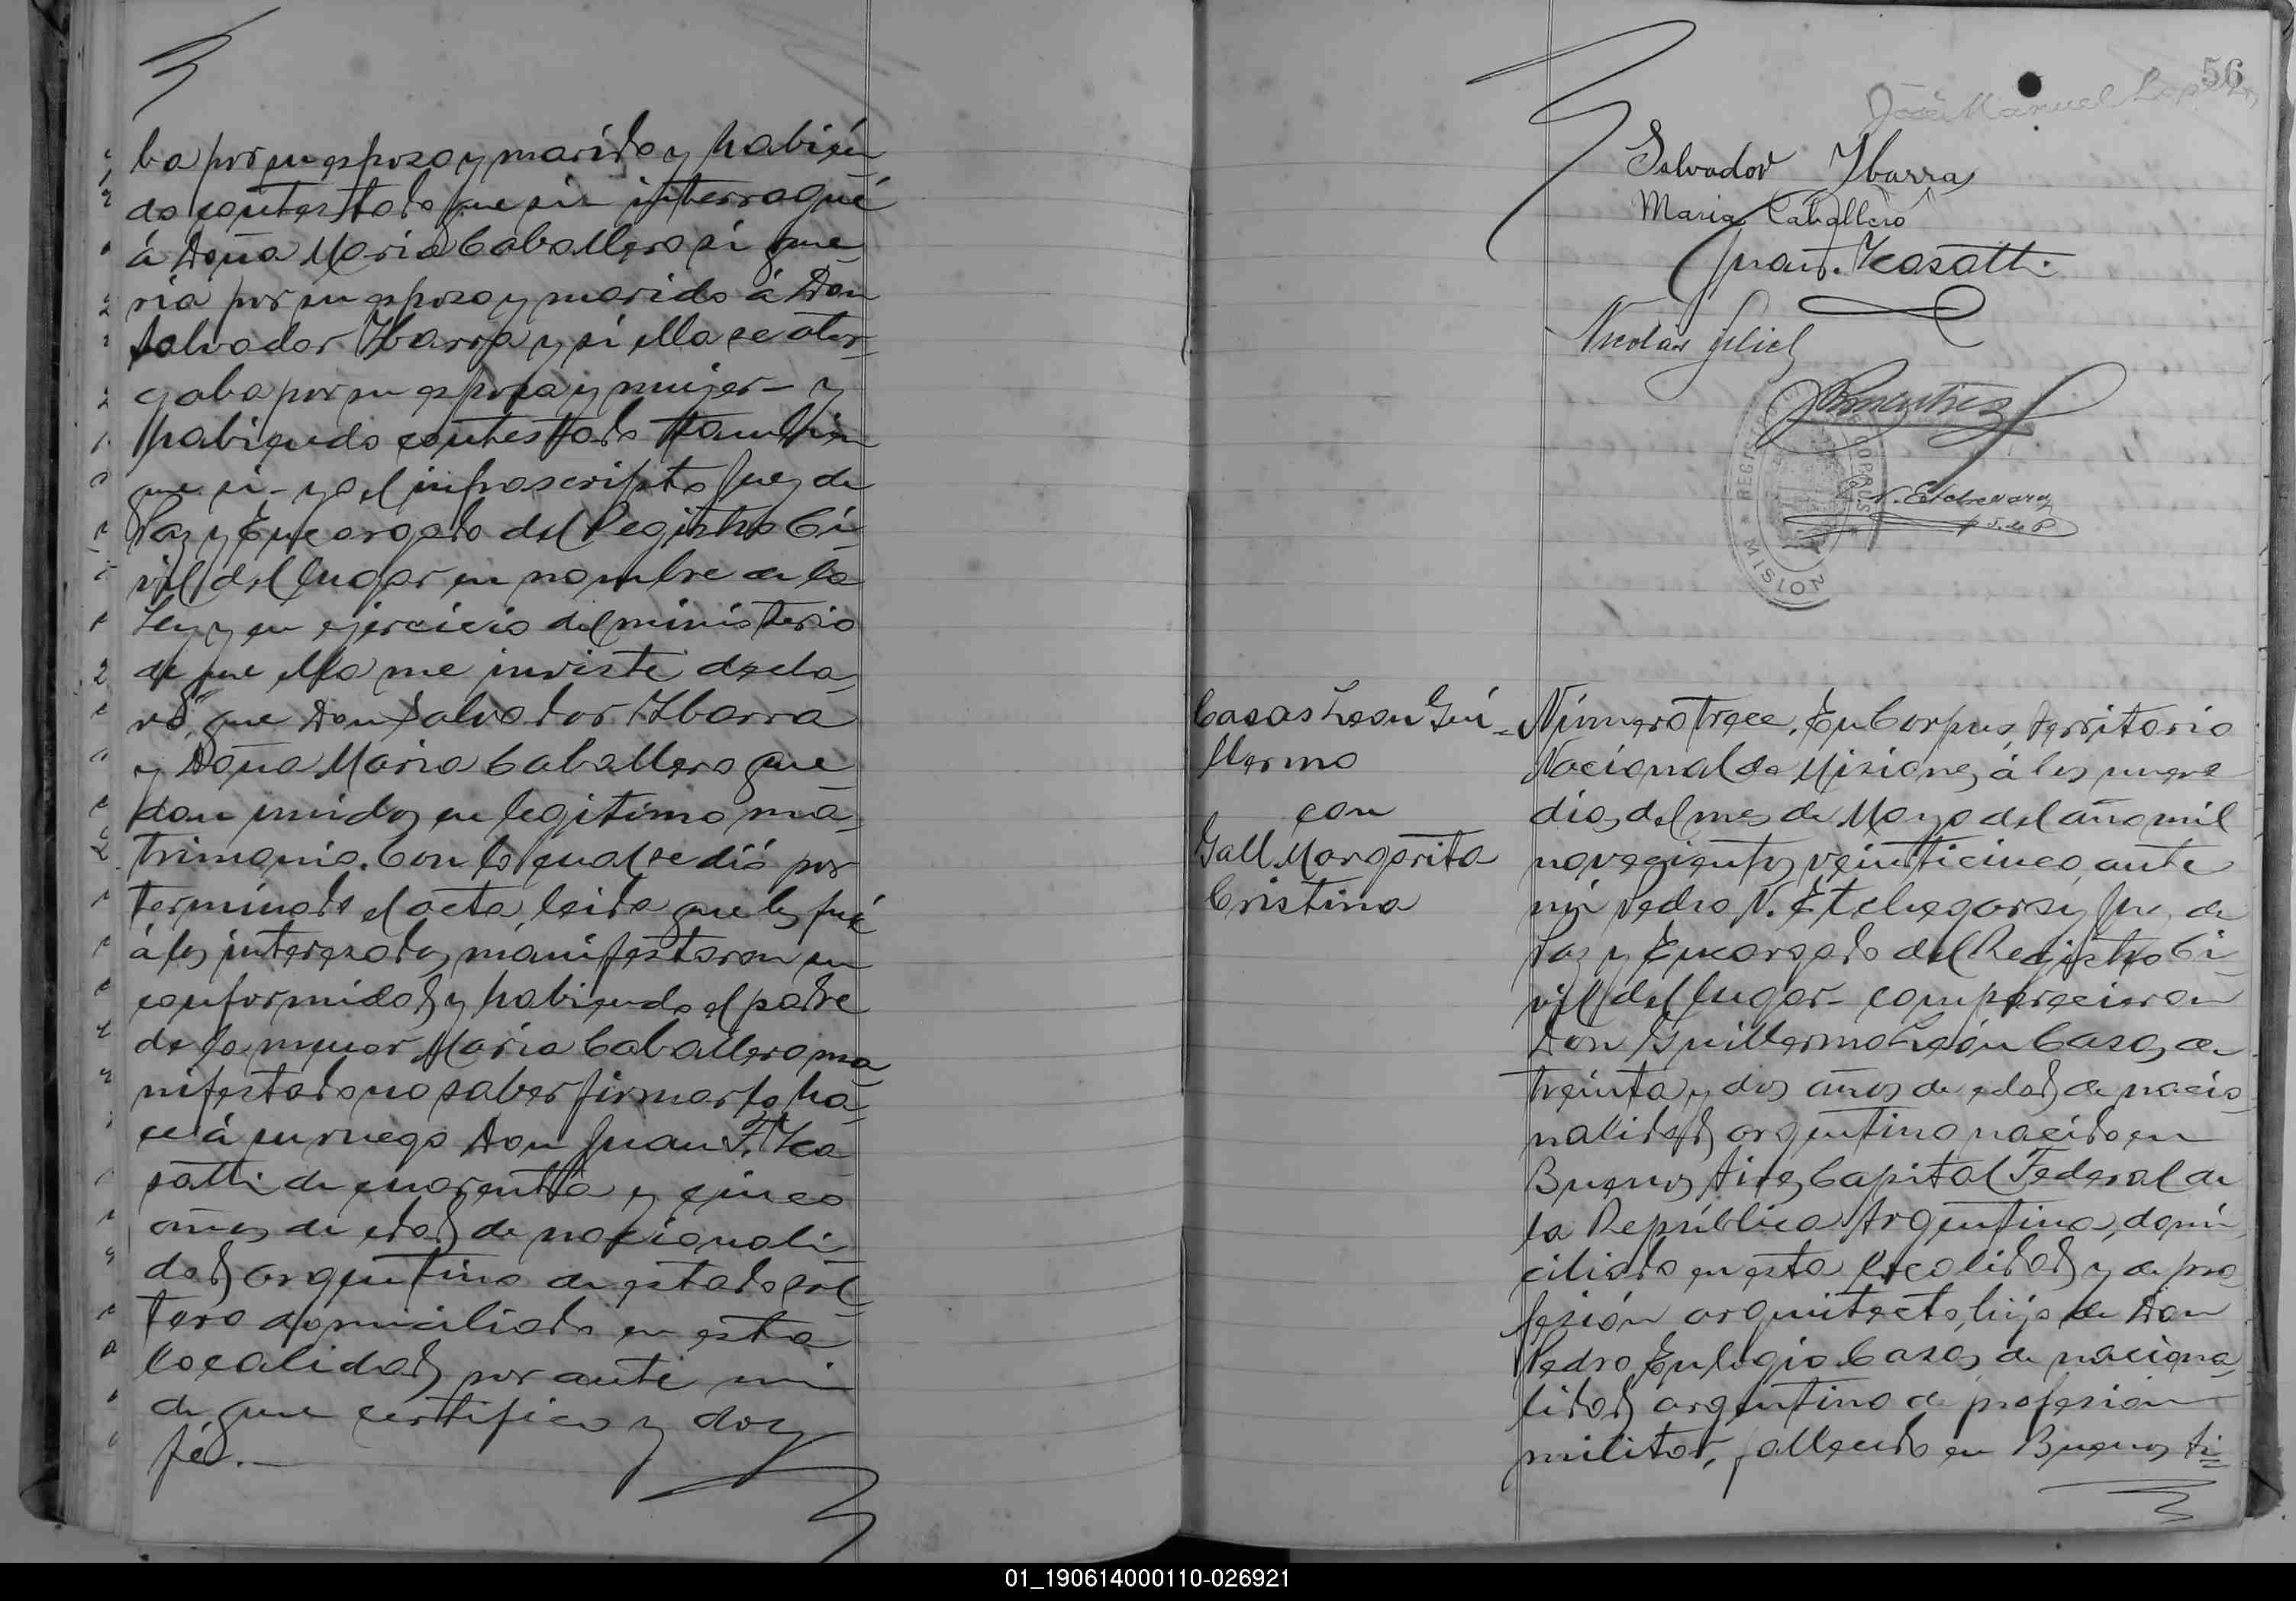 ba por su esposo y marido y habién
do contestado que si = interrogué
á Doña Maria Caballero si que
ria por su esposo y marido á Don
Salvador Ybarra y si ella se otor-
gaba por su esposa y mujer - y
habiendo contestado tambien
que si - yo el infrascripto Juez de
Paz y Encargado del Registro Ci-
vil del lugar en nombre de la
Ley y en ejercicio del ministerio
de que ella me inviste decla-
ro, que Don Salvador Ybarra
y Doña Maria Caballero que
dan unidos en legitimo ma-
trimonio. Con lo cual se dió por
terminado el acta, leida que les fué
á los interesados, manifestaron su
conformidad y habiendo el padre
de la menor Maria Caballero ma
nifestado no saber firmar lo ha-
ce á su ruego Don Juan F. Yca
satti de cuarenta y cinco
años de edad de nacionali
dad argentino de estado sol-
tero domiciliado en esta
localidad por ante mi
de que certifico y doy
fé.-
56
José Manuel
Salvador Ybarra
Maria Caballero
Juan F. Ycasatti
Nicolás
P. N. Etchegaray
J. de P
MISION
Casas Leon Gui-
llermo
con
Gall Margarita
Cristina
Número trece. En Corpus, territorio
Nacional de Misiones á los nueve
dias del mes de Mayo del año mil
novecientos veinticinco, ante
mi Pedro N. Etchegaray Juez de
Paz y Encargado del Registro Ci-
vil del lugar - comparecieron
Don Guillermo León Casas, de
treinta y dos años de edad, de nacio-
nalidad argentino nacido en
Buenos Aires Capital Federal de
la República Argentina, domi
ciliado en esta localidad y de pro
fesión arquitecto, hijo de Don
Pedro Eulogio Casas, de naciona
lidad argentino de profesion
militar, fallecido en Buenos Ai=
01_190614000110-026921